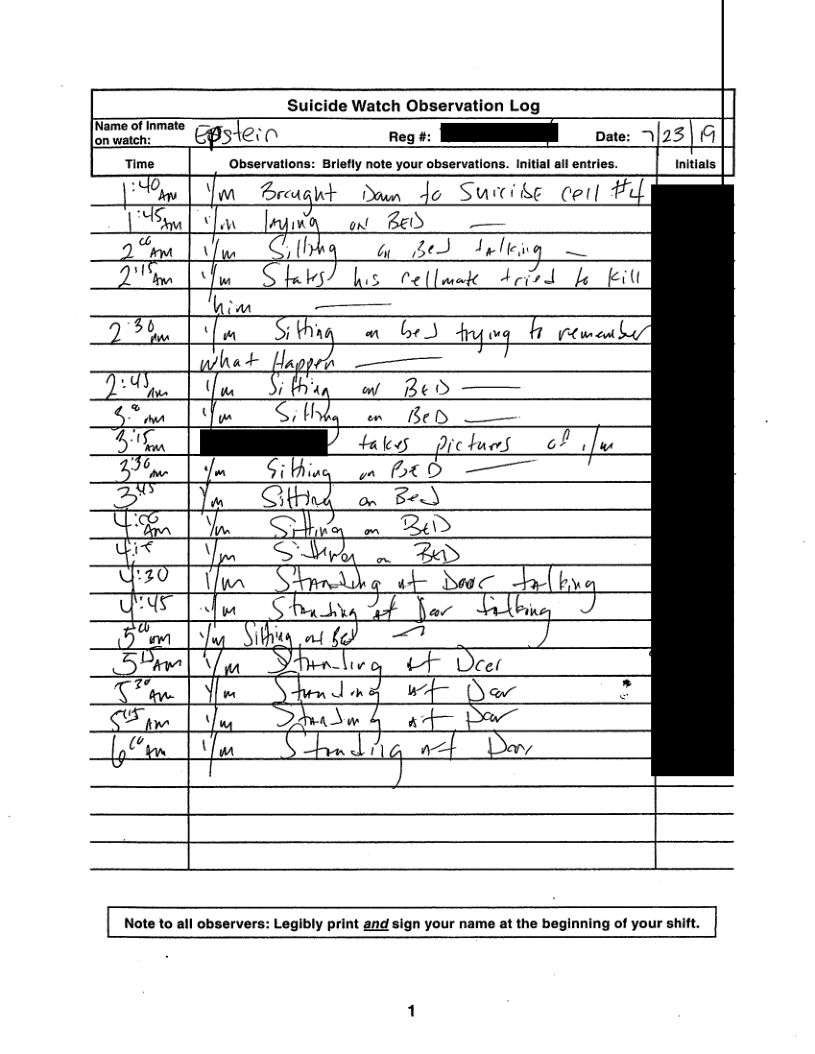 Suicide Watch Observation Log
Name of Inmate on watch: Epstein Reg #: Date: 7/23/19
Time Observations: Briefly note your observations. Initial all entries. Initials
1:40 AM I/m Brought Down to Suicide cell #4
1:45 AM I/m laying on BED
2:00 AM I/m Sitting on Bed talking
2:15 AM I/m States his cellmate tried to kill
him
2:30 am I/m Sitting on bed trying to remember
what Happen
2:45 AM I/m Sitting on BED
3:00 AM I/m Sitting on BED
3:15 AM takes pictures of I/m
3:30 am I/m Sitting on BED
3:45 I/m Sitting on Bed
4:00 Am I/m Sitting on BED
4:15 I/m Sitting on BED
4:30 I/m Standing at Door talking
4:45 I/m Standing at Door talking
5:00 am I/m Sitting on Bed
5:15 AM I/m Standing at Door
5:30 Am I/m Standing at Door
I/m Standing at Door
6:00 Am I/m Standing at Door
Note to all observers: Legibly print and sign your name at the beginning of your shift.
1